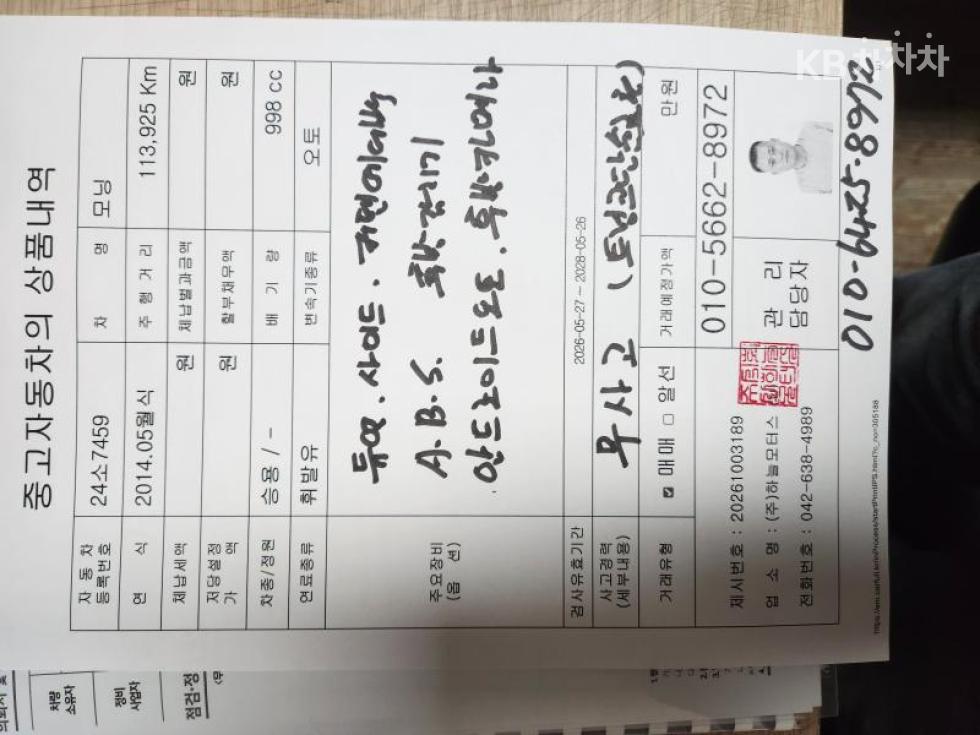 KB차차차
중고자동차의 상품내역
자 동 차 등록번호 24소7459 차 명 모닝
연 식 2014.05월식 주 행 거 리 113,925 Km
체납세액 원 체납범과금액 원
저당설정 가 액 원 할부채무액 원
차종/정원 승용 / - 배 기 량 998 cc
연료종류 휘발유 변속기종류 오토
주요장비 (옵 션)
듀얼 . 사이드 . 커텐에어백
A.B.S.
안드로이드오토 . 후방카메라
검사유효기간 2026-05-27 ~ 2028-05-26
사고경력 (세부내용) 무사고
거래유형 ☑ 매매 □ 알선 거래예정가액 만원
제시번호 : 20261003189
업 소 명 : (주)하늘모터스
전화번호 : 042-638-4989
관 리 담당자
010-5662-8972
010-6425-8972
차량 소유자
정비 사업자
점검·정